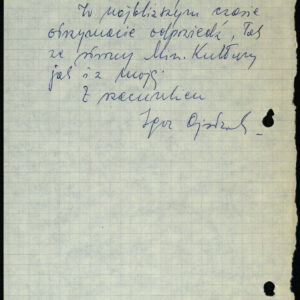 W najbliższym czasie
otrzymacie odpowiedź, tak
ze strony Min. Kultury
jak i z mojej.
Z szacunkiem
Igor